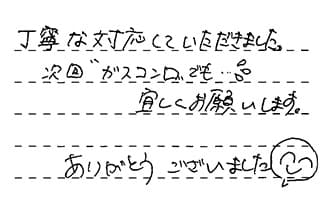 丁寧な対応していただきました。
次回ガスコンロでも…
宜しくお願いします。
ありがとうございました